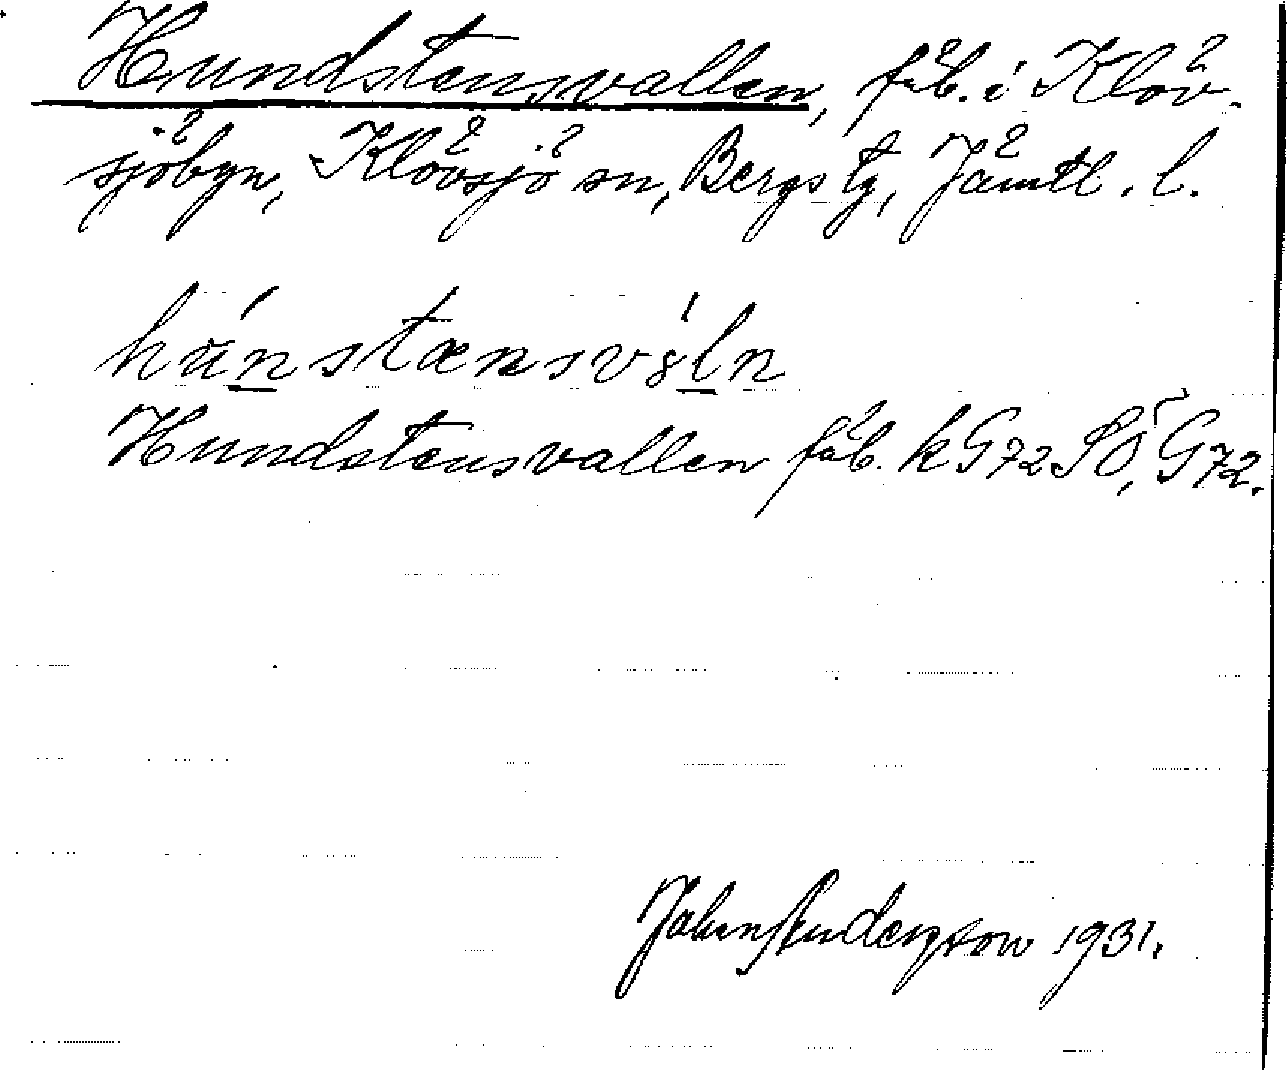 Hundstensvallen, fäb. i Klöv-
sjöbyn, Klövsjö sn, Bergs tg, Jämtl. l.
Hundstensvallen fäb. k G72 SÖ, G72.
John Anderson 1931.